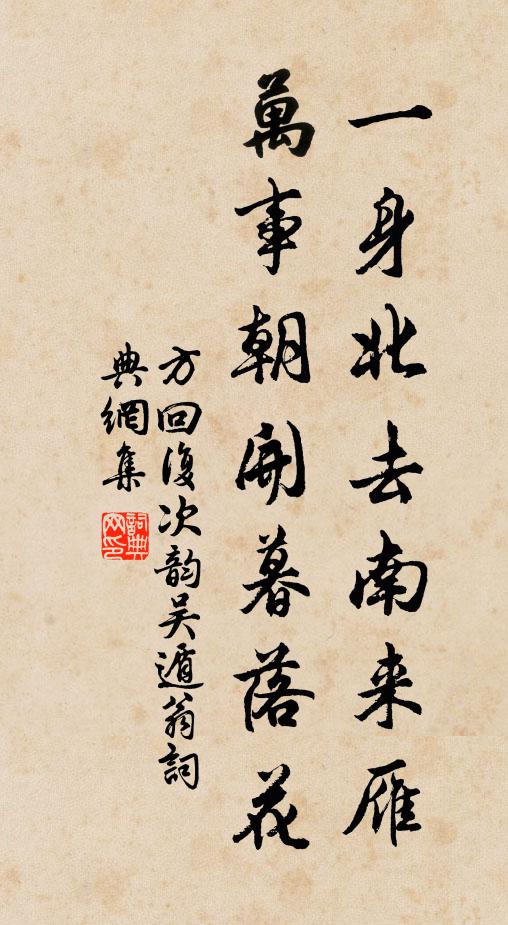 一身北去南来雁
萬事朝開暮落花
方回復次韵吴遁翁詞
典網集
詞典
网印